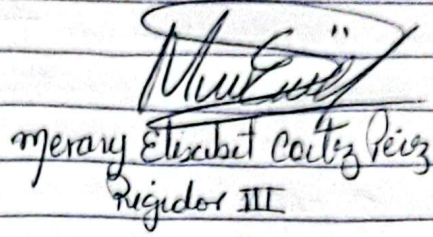 Merary Elisabet Cortez Pérez
Regidor III